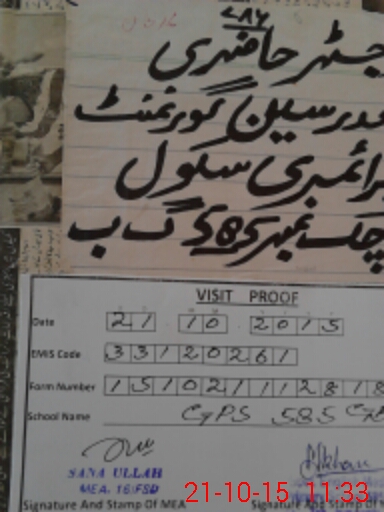 ۷۸۶
رجسٹر حاضری
مدرسین گورنمنٹ
پرائمری سکول
چک نمبر 585 گ ب
VISIT PROOF
Date 21 10 2015
EMIS Code 33120261
Form Number 151021112818
School Name GPS 585 GB
SANA ULLAH
MEA. 16/FSD
Signature And Stamp Of MEA
Signature And Stamp Of
21-10-15 11:33